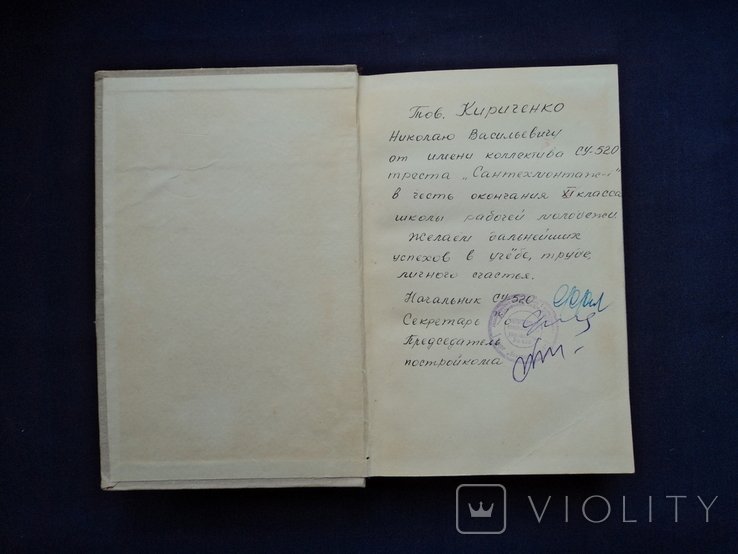 Тов. Кириченко
Николаю Васильевичу
от имени коллектива СУ-520
треста „Сантехмонтаж-1"
в честь окончания XI класса
школы рабочей молодежи
Желаем дальнейших
успехов в учёбе, труде,
личного счастья.
Начальник СУ-520
Секретарь
Председатель
постройкома
VIOLITY